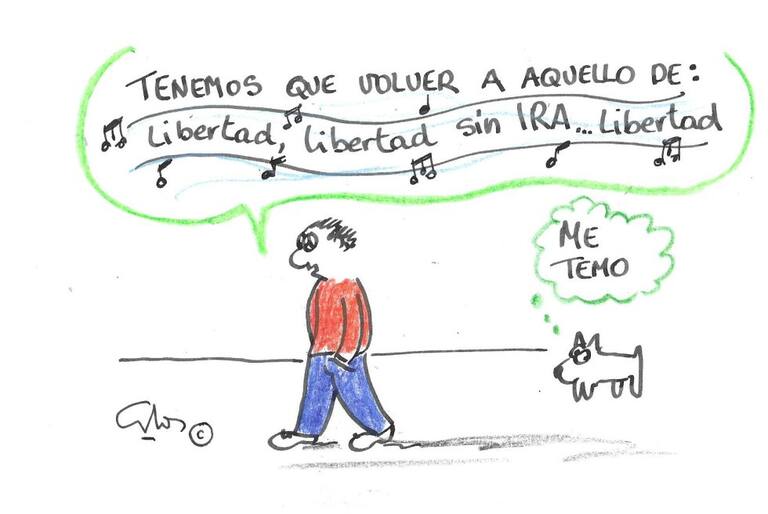 TENEMOS QUE VOLVER A AQUELLO DE:
Libertad, libertad sin IRA... Libertad
ME
TEMO
©